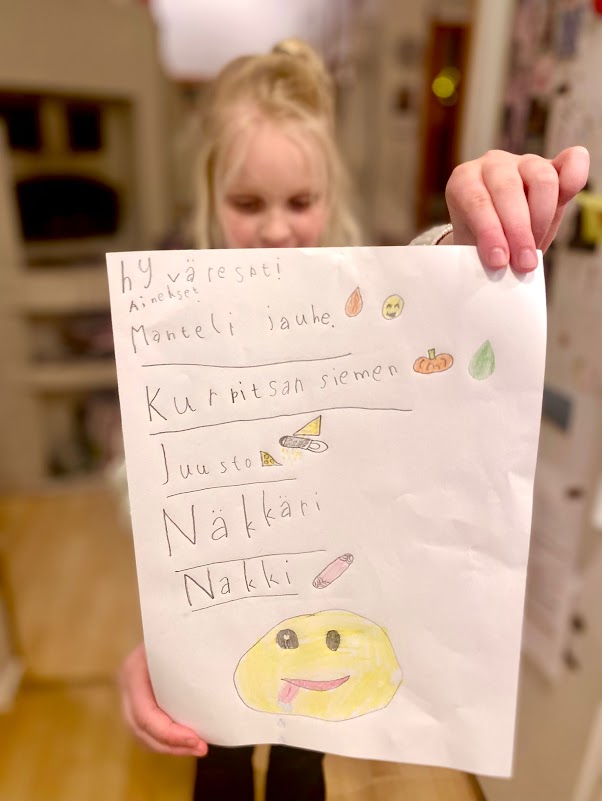 hyväresepti
Ainekset
Manteli jauhe.
Kurpitsan siemen
Juusto
Näkkäri
Nakki